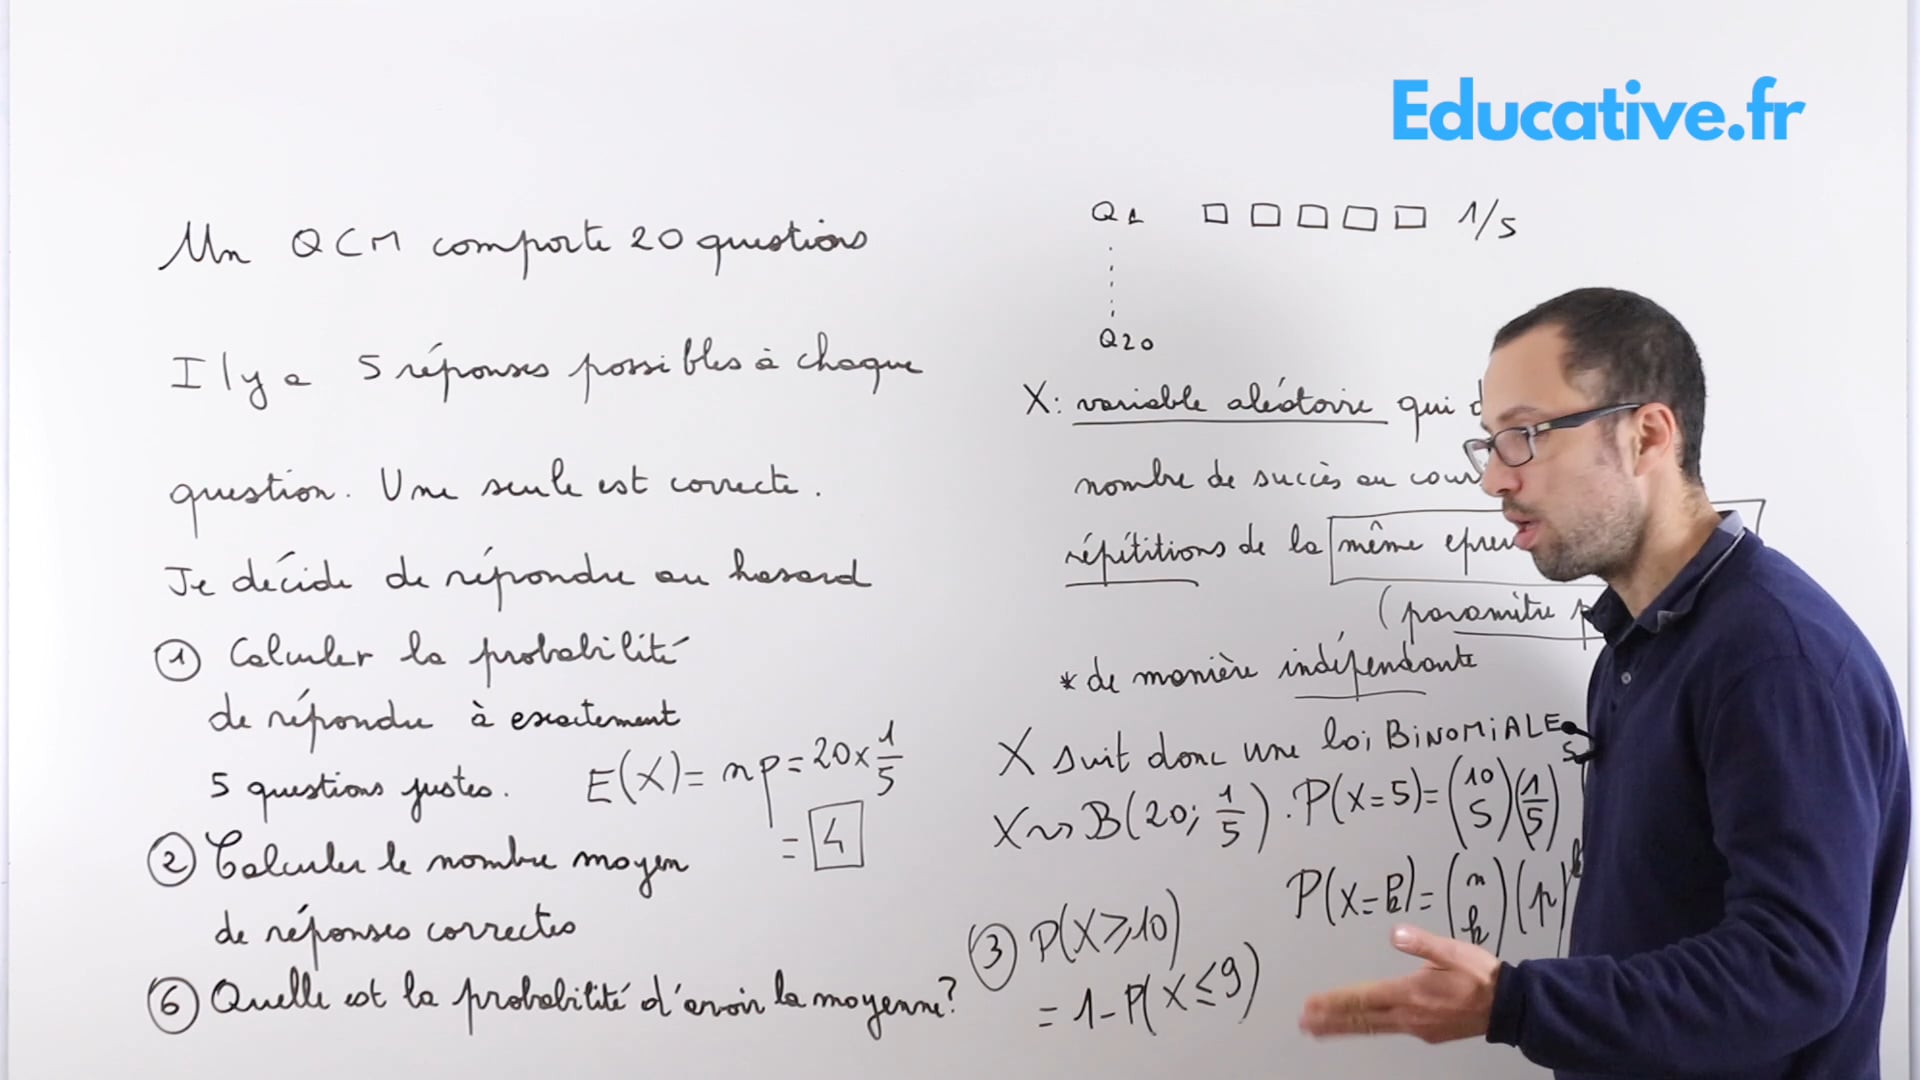 Educative.fr
Un QCM comporte 20 questions
Il y a 5 réponses possibles à chaque
question. Une seule est correcte.
Je décide de répondre au hasard
① Calculer la probabilité
de répondre à exactement
5 questions justes.
E(X) = np = 20 x 1/5
= 4
② Calculer le nombre moyen
de réponses correctes
⑥ Quelle est la probabilité d'avoir la moyenne?
Q1 □ □ □ □ □ 1/5
Q20
X: variable aléatoire qui
nombre de succès au cour
répétitions de la même epreu
(paramètre p
* de manière indépendante
X suit donc une loi BiNOMiALE
X ~> B(20; 1/5). P(X=5) = (10 5) (1/5)^5
P(X=k) = (n k) (p)^k
③ P(X ≥ 10)
= 1 - P(X ≤ 9)